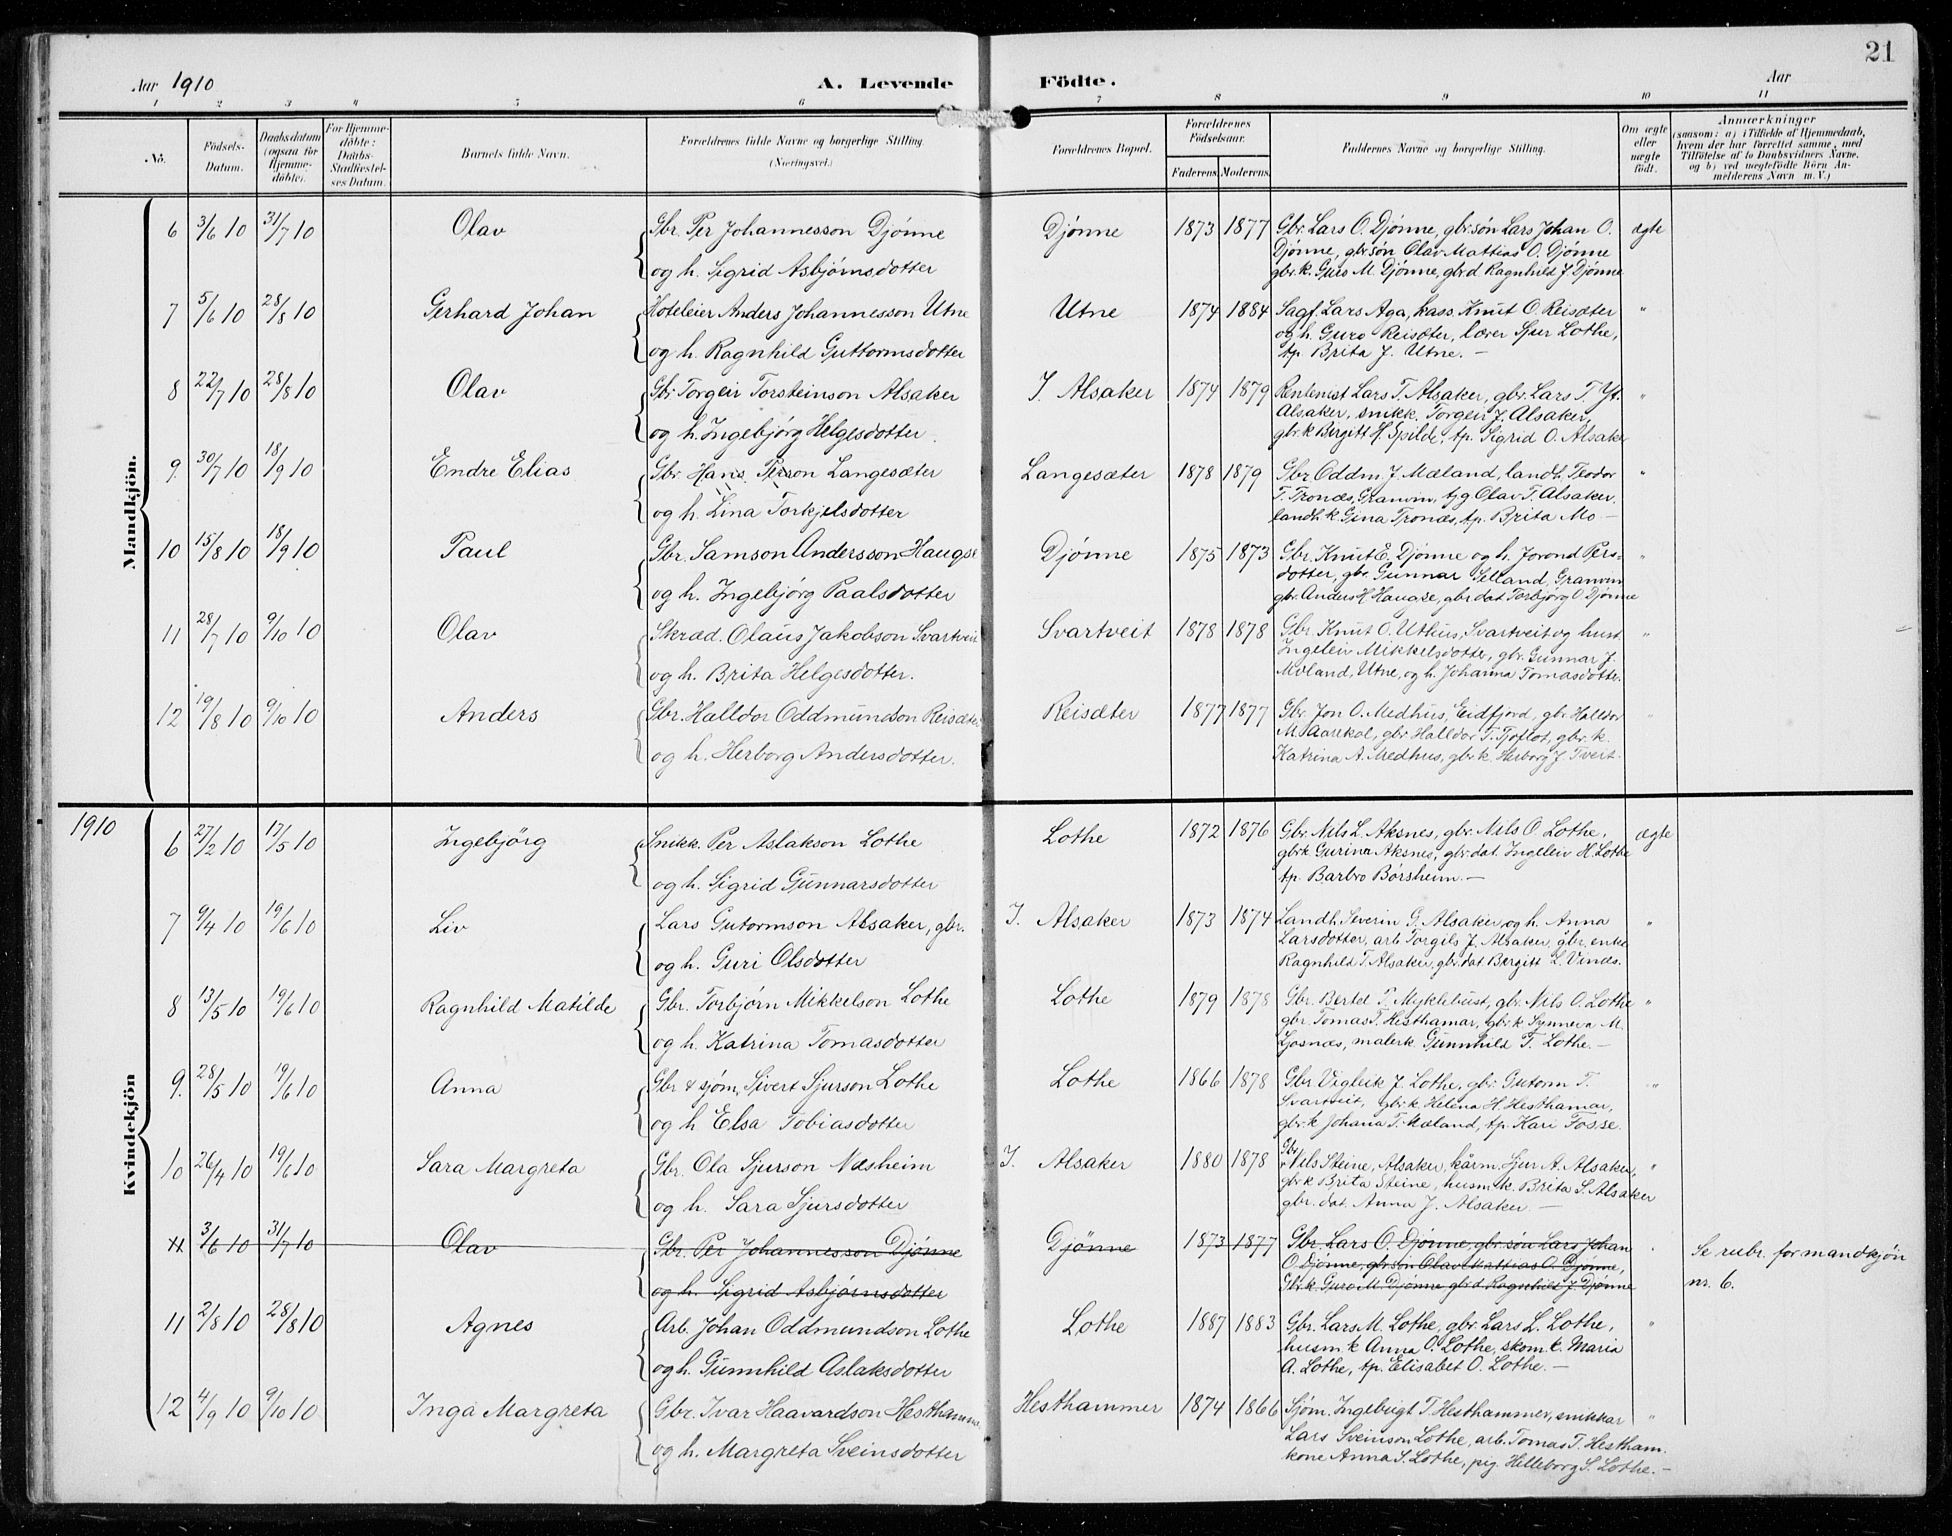 21
Aar 1910
A. Levende Födte.
Aar
1 2 3 4 5 6 7 8 9 10 11
No.
Födsels-Datum.
Daabsdatum (ogsaa for Hjemmedöbte).
For Hjemmedöbte: Daabs-Stadfæstelses Datum.
Barnets fulde Navn.
Forældrenes fulde Navne og borgerlige Stilling. (Næringsvei.)
Forældrenes Bopæl.
Forældrenes Födselsaar.
Faderens. Moderens.
Faddernes Navne og borgerlige Stilling.
Om ægte eller uægte födt.
Anmærkninger
(saasom: a) i Tilfælde af Hjemmedaab, hvem der har forrettet samme, med Tilföielse af to Daabsvidners Navne. og b) ved uægtefödte Börn Anmelderens Navn m. V.)
Mandkjön.
6 3/6 10 31/7 10 Olav Gbr. Per Johannesson Djønne Djønne 1873 1877 Gbr. Lars O. Djønne, gbr.søn Lars Johan O. ægte
og h. Sigrid Asbjørnsdotter Djønne, gbr.søn Olav Mattias O. Djønne
gbr.k. Guro M. Djønne, gbr.d Ragnhild J Djønne
7 5/6 10 28/8 10 Gerhard Johan Hoteleier Anders Johannesson Utne Utne 1874 1884 Sagf. Lars Aga, kass. Knut O. Reisæter "
og h. Ragnhild Guttormsdotter og h. Guro Reisæter, lærer Sjur Lothe,
tp. Brita J. Utne. —
8 22/7 10 28/8 10 Olav Gbr Torgeir Torsteinson Alsaker I. Alsaker 1874 1879 Rentenist Lars T. Alsaker, gbr. Lars T. Yt. "
og h. Ingebjørg Helgesdotter. Alsaker, snikk. Torgeir J. Alsaker,
gbr.k Bergitt H. Spilde, tp. Sigrid O. Alsaker
9. 30/7 10 18/9 10 Endre Elias Gbr. Hans Person Langesæter Langesæter 1878 1879 Gbr Oddm. J. Mæland, landh. Teodor "
og h. Lina Torkjelsdotter T. Tronæs, Granvin, tjg Olav T. Alsaker,
landh.k Gina Tronæs, tp. Brita Mo —
10 15/8 10 18/9 10 Paul Gbr. Samson Andersson Haugse Djønne 1875 1873 Gbr. Knut E. Djønne og h. Jorond Pers- "
og h. Ingebjørg Paalsdotter dotter, gbr. Gunnar Selland, Granvin
gbr. Anders H Haugse, gbr dat Torbjørg O Djønne
11 28/7 10 9/10 10 Olav Skræd. Olaus Jakobson Svartveit Svartveit 1878 1878 Gbr. Knut O. Uthus, Svartveit og hust. "
og h. Brita Helgesdotter. Ingeleiv Mikkelsdotter, gbr. Gunnar J.
Mæland, Utne, og h. Johanna Tomasdotter.
12 19/8 10 9/10 10 Anders Gbr. Halldor Oddmundson Reisæter Reisæter 1877 1877 Gbr. Jon O. Medhus, Eidfjord, gbr. Halldor "
og h. Herborg Andersdotter. gbr. Halldor T. Tjoflot, gbr. k.
Katrina A. Medhus, gbr.k. Herborg J Tveit.
1910
Kvindekjön
6 27/2 10 17/5 10 Ingebjörg Snikk. Per Aslakson Lothe Lothe 1872 1876 Gbr. Nils L. Aksnes, gbr. Nils O. Lothe, ægte
og h. Sigrid Gunnarsdotter gbr.k. Gurina Aksnes, gbr.dat. Ingeleiv H. Lothe
tp. Barbro Børsheim. —
7 9/4 10 19/6 10 Liv Lars Gutormson Alsaker, gbr. I. Alsaker 1873 1874 Landh. Severin G. Alsaker, og h. Anna "
og h. Guri Olsdotter Larsdotter, arb. Torgils J. Alsaker, gbr. enke
Ragnhild T. Alsaker, gbr.dat. Bergitt L. Vines.
8 13/5 10 19/6 10 Ragnhild Matilde Gbr. Torbjørn Mikkelson Lothe Lothe 1879 1878 Gbr. Bertel T. Myklebust, gbr. Nils O. Lothe "
og h. Katrina Tomasdotter gbr. Tomas T. Hesthamar, gbr.k. Synneva M.
Ljosnæs, malerk Gunnhild T. Lothe. —
9. 28/5 10 19/6 10 Anna Gbr & sjøm. Sivert Sjurson Lothe Lothe 1866 1878 Gbr. Vigleik J. Lothe, gbr. Gutorm T. "
og h Elsa Tobiasdotter Svartveit, gbr.k. Helena H. Hesthamar,
gbr.k Johana T. Mæland, tp. Kari Fosse.
10 26/4 10 19/6 10 Sara Margreta Gbr. Ola Sjurson Næsheim I. Alsaker 1880 1878 Gbr. Nils Steine, Alsaker, kårm. Sjur A. Alsaker, "
og h. Sara Sjursdotter gbr.k Brita Steine, husm.k. Brita S. Alsaker
gbr. dat. Anna J. Alsaker. —
11 3/6 10 31/7 10 Olav Gbr. Per Johannesson Djønne Djønne 1873 1877 Gbr. Lars O. Djønne, gbr. søn Lars Johan " Se rubr. for mandkjön
og h. Sigrid Asbjørnsdotter O. Djønne, gbr. søn Olav Mattias O. Djønne, nr. 6.
Gbr.k. Guro M. Djønne gbr.d Ragnhild J. Djønne
11 2/8 10 28/8 10 Agnes Arb. Johan Oddmundson Lothe Lothe 1887 1883 Gbr. Lars M. Lothe, gbr. Lars L. Lothe, "
og h. Gunnhild Aslaksdotter husm.k Anna O. Lothe, skom. k. Maria
A. Lothe, tp. Elisabet O. Lothe. —
12 4/9 10 9/10 10 Inga Margreta Gbr. Ivar Haavardson Hesthammer Hesthammer 1874 1866 Sjøm. Ingebugt T. Hesthammer, snikkar "
og h. Margreta Sveinsdotter Lars Sveinson Lothe, arb. Tomas T. Hestham.
kone Anna S. Lothe, pig. Helleborg S. Lothe. —